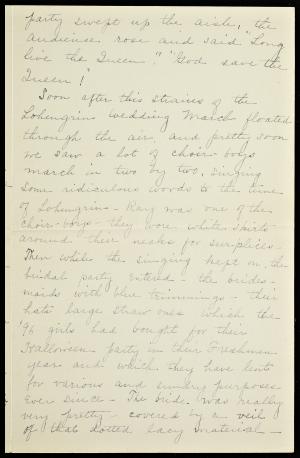 party swept up the aisle, the
audience rose and said "Long
live the Queen!" "God save the
Queen!"
Soon after this strains of the
Lohengrin Wedding March floated
through the air, and pretty soon
we saw a lot of choir-boys
march in two by two, singing
some ridiculous words to the tune
of Lohengrin - Kary was one of the
choir-boys - they wore white skirts
around their necks for surplices -
Then while the singing kept on, the
bridal party entered - the brides-
maids with blue trimmings - their
hats large straw ones which the
'96 girls had bought for their
Halloween party in their Freshman
year and which they have lent
for various and sundry purposes
ever since - The bride was really
very pretty - covered by a veil
of that dotted lacy material -